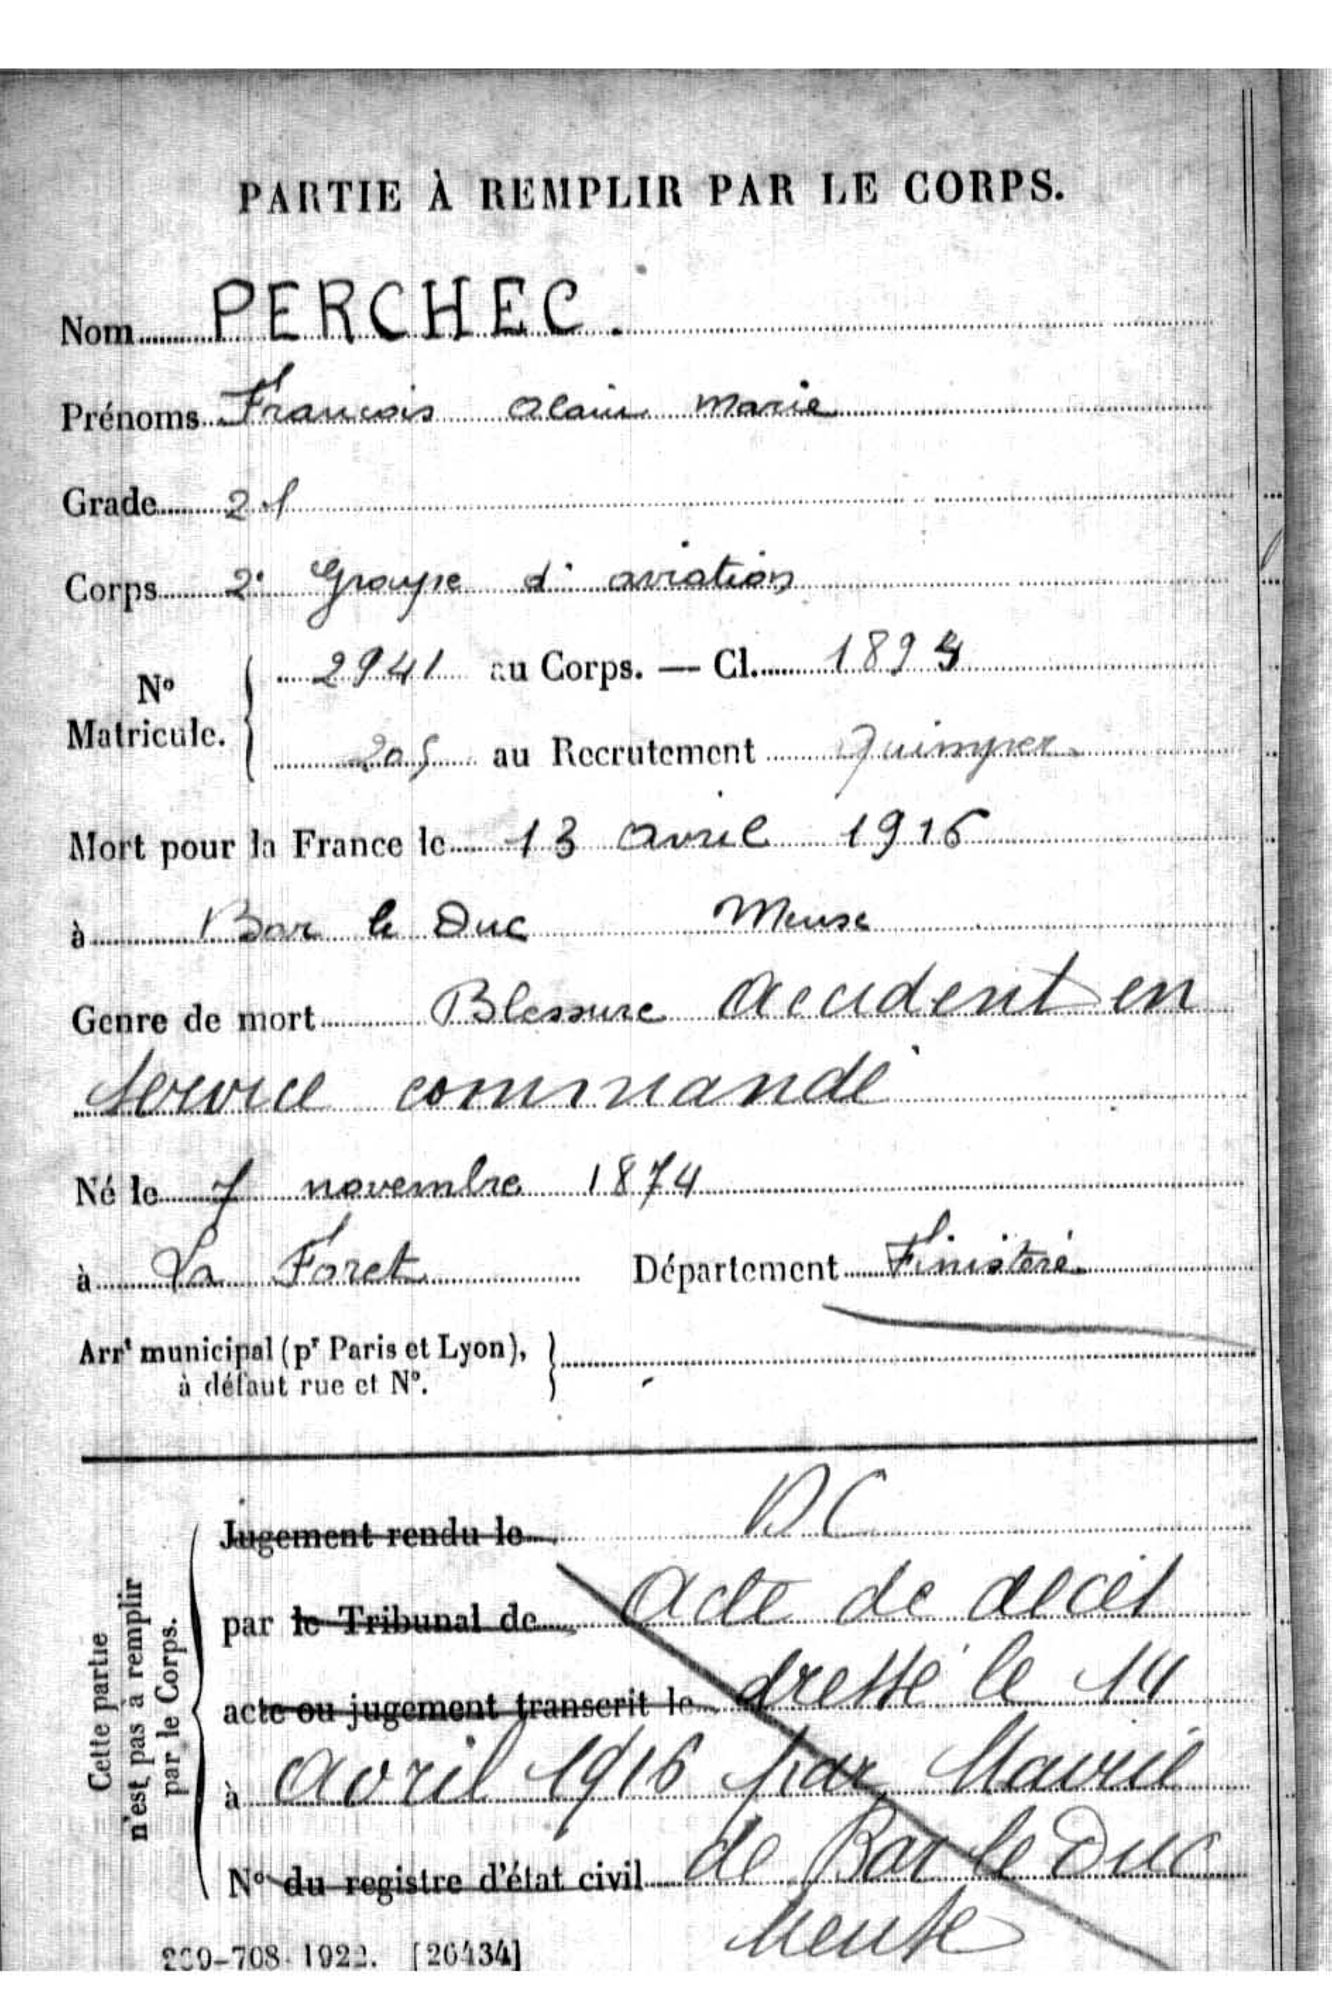 PARTIE À REMPLIR PAR LE CORPS.
Nom PERCHEC.
Prénoms Francois alain marie
Grade 2
Corps 2e Groupe d'aviation
No Matricule. 2941 au Corps. — Cl. 1894
205 au Recrutement Quimper
Mort pour la France le 13 avril 1916
à Bar le Duc Meuse
Genre de mort Blessure accident en
service commandé
Né le 7 novembre 1874
à La Foret Département Finistère
Arrt municipal (pr Paris et Lyon),
à défaut rue et No.
Cette partie
n'est pas à remplir
par le Corps.
Jugement rendu le DC
par le Tribunal de acte de décès
acte ou jugement transcrit le dressé le 14
à avril 1916 par Mairie
No du registre d'état civil de Bar le Duc
Meuse
708-1922. [26434]